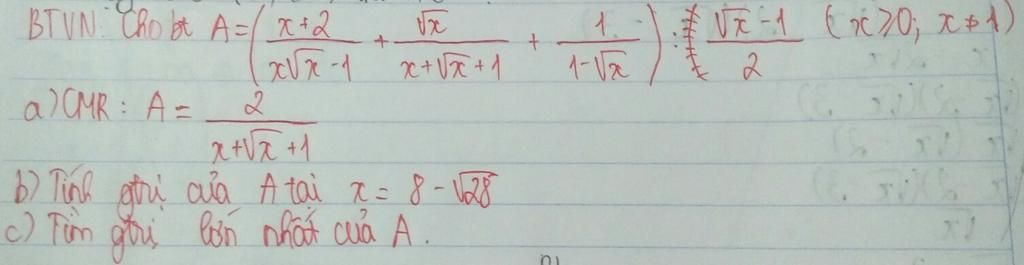 BTVN: Cho bt A = ( (x+2)/(x√x -1) + √x/(x+√x+1) + 1/(1-√x) ) : (√x -1)/2 (x≥0; x≠1)
a) CMR: A = 2/(x+√x+1)
b) Tính gtrị của A tại x = 8 - √28
c) Tìm gtrị lớn nhất của A.